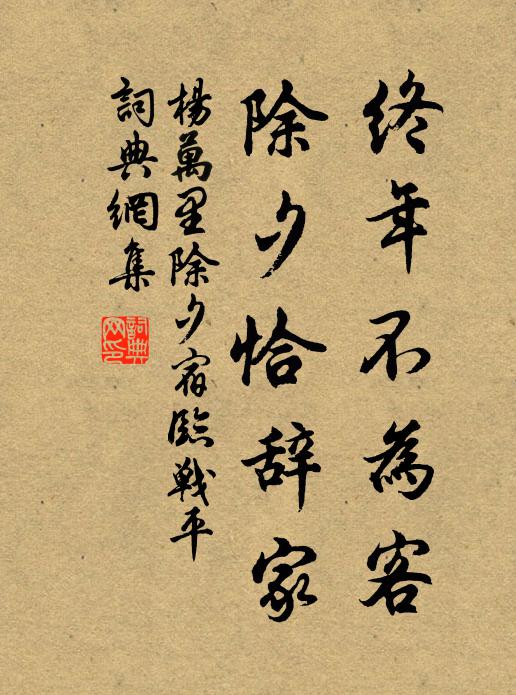 終年不為客
除夕恰辞家
楊萬里除夕宿臨戦平
詞典網集
詞典网印